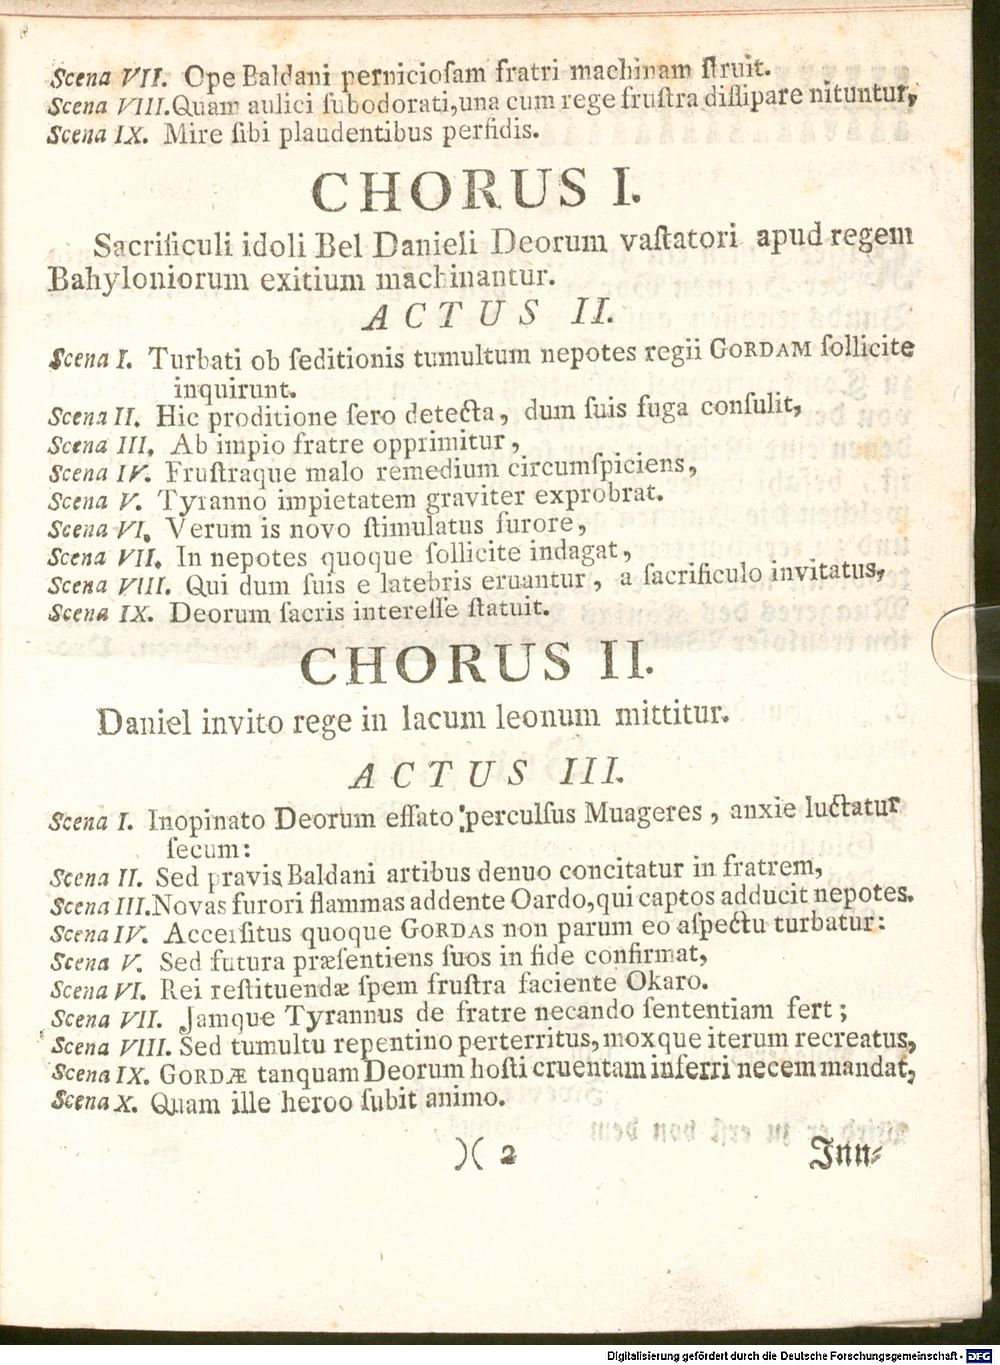 Scena VII. Ope Baldani pernicioſam fratri machinam ſtruit.
Scena VIII. Quam aulici ſubodorati, una cum rege fruſtra diſſipare nituntur,
Scena IX. Mire ſibi plaudentibus perfidis.
CHORUS I.
Sacrificuli idoli Bel Danieli Deorum vaſtatori apud regem
Babyloniorum exitium machinantur.
ACTUS II.
Scena I. Turbati ob ſeditionis tumultum nepotes regii GORDAM ſollicite
inquirunt.
Scena II. Hic proditione ſero detecta, dum ſuis fuga conſulit,
Scena III. Ab impio fratre opprimitur,
Scena IV. Fruſtraque malo remedium circumſpiciens,
Scena V. Tyranno impietatem graviter exprobrat.
Scena VI. Verum is novo ſtimulatus furore,
Scena VII. In nepotes quoque ſollicite indagat,
Scena VIII. Qui dum ſuis e latebris eruantur, a ſacrificulo invitatus,
Scena IX. Deorum ſacris intereſſe ſtatuit.
CHORUS II.
Daniel invito rege in lacum leonum mittitur.
ACTUS III.
Scena I. Inopinato Deorum effato perculſus Muageres, anxie luctatur
ſecum:
Scena II. Sed pravis Baldani artibus denuo concitatur in fratrem,
Scena III. Novas furori flammas addente Oardo, qui captos adducit nepotes.
Scena IV. Accerſitus quoque GORDAS non parum eo aſpectu turbatur:
Scena V. Sed futura præſentiens ſuos in fide confirmat,
Scena VI. Rei reſtituendæ ſpem fruſtra faciente Okaro.
Scena VII. Jamque Tyrannus de fratre necando ſententiam fert;
Scena VIII. Sed tumultu repentino perterritus, moxque iterum recreatus,
Scena IX. GORDÆ tanquam Deorum hoſti cruentam inferri necem mandat,
Scena X. Quam ille heroo ſubit animo.
)( 2 Inn⸗
Digitalisierung gefördert durch die Deutsche Forschungsgemeinschaft - DFG